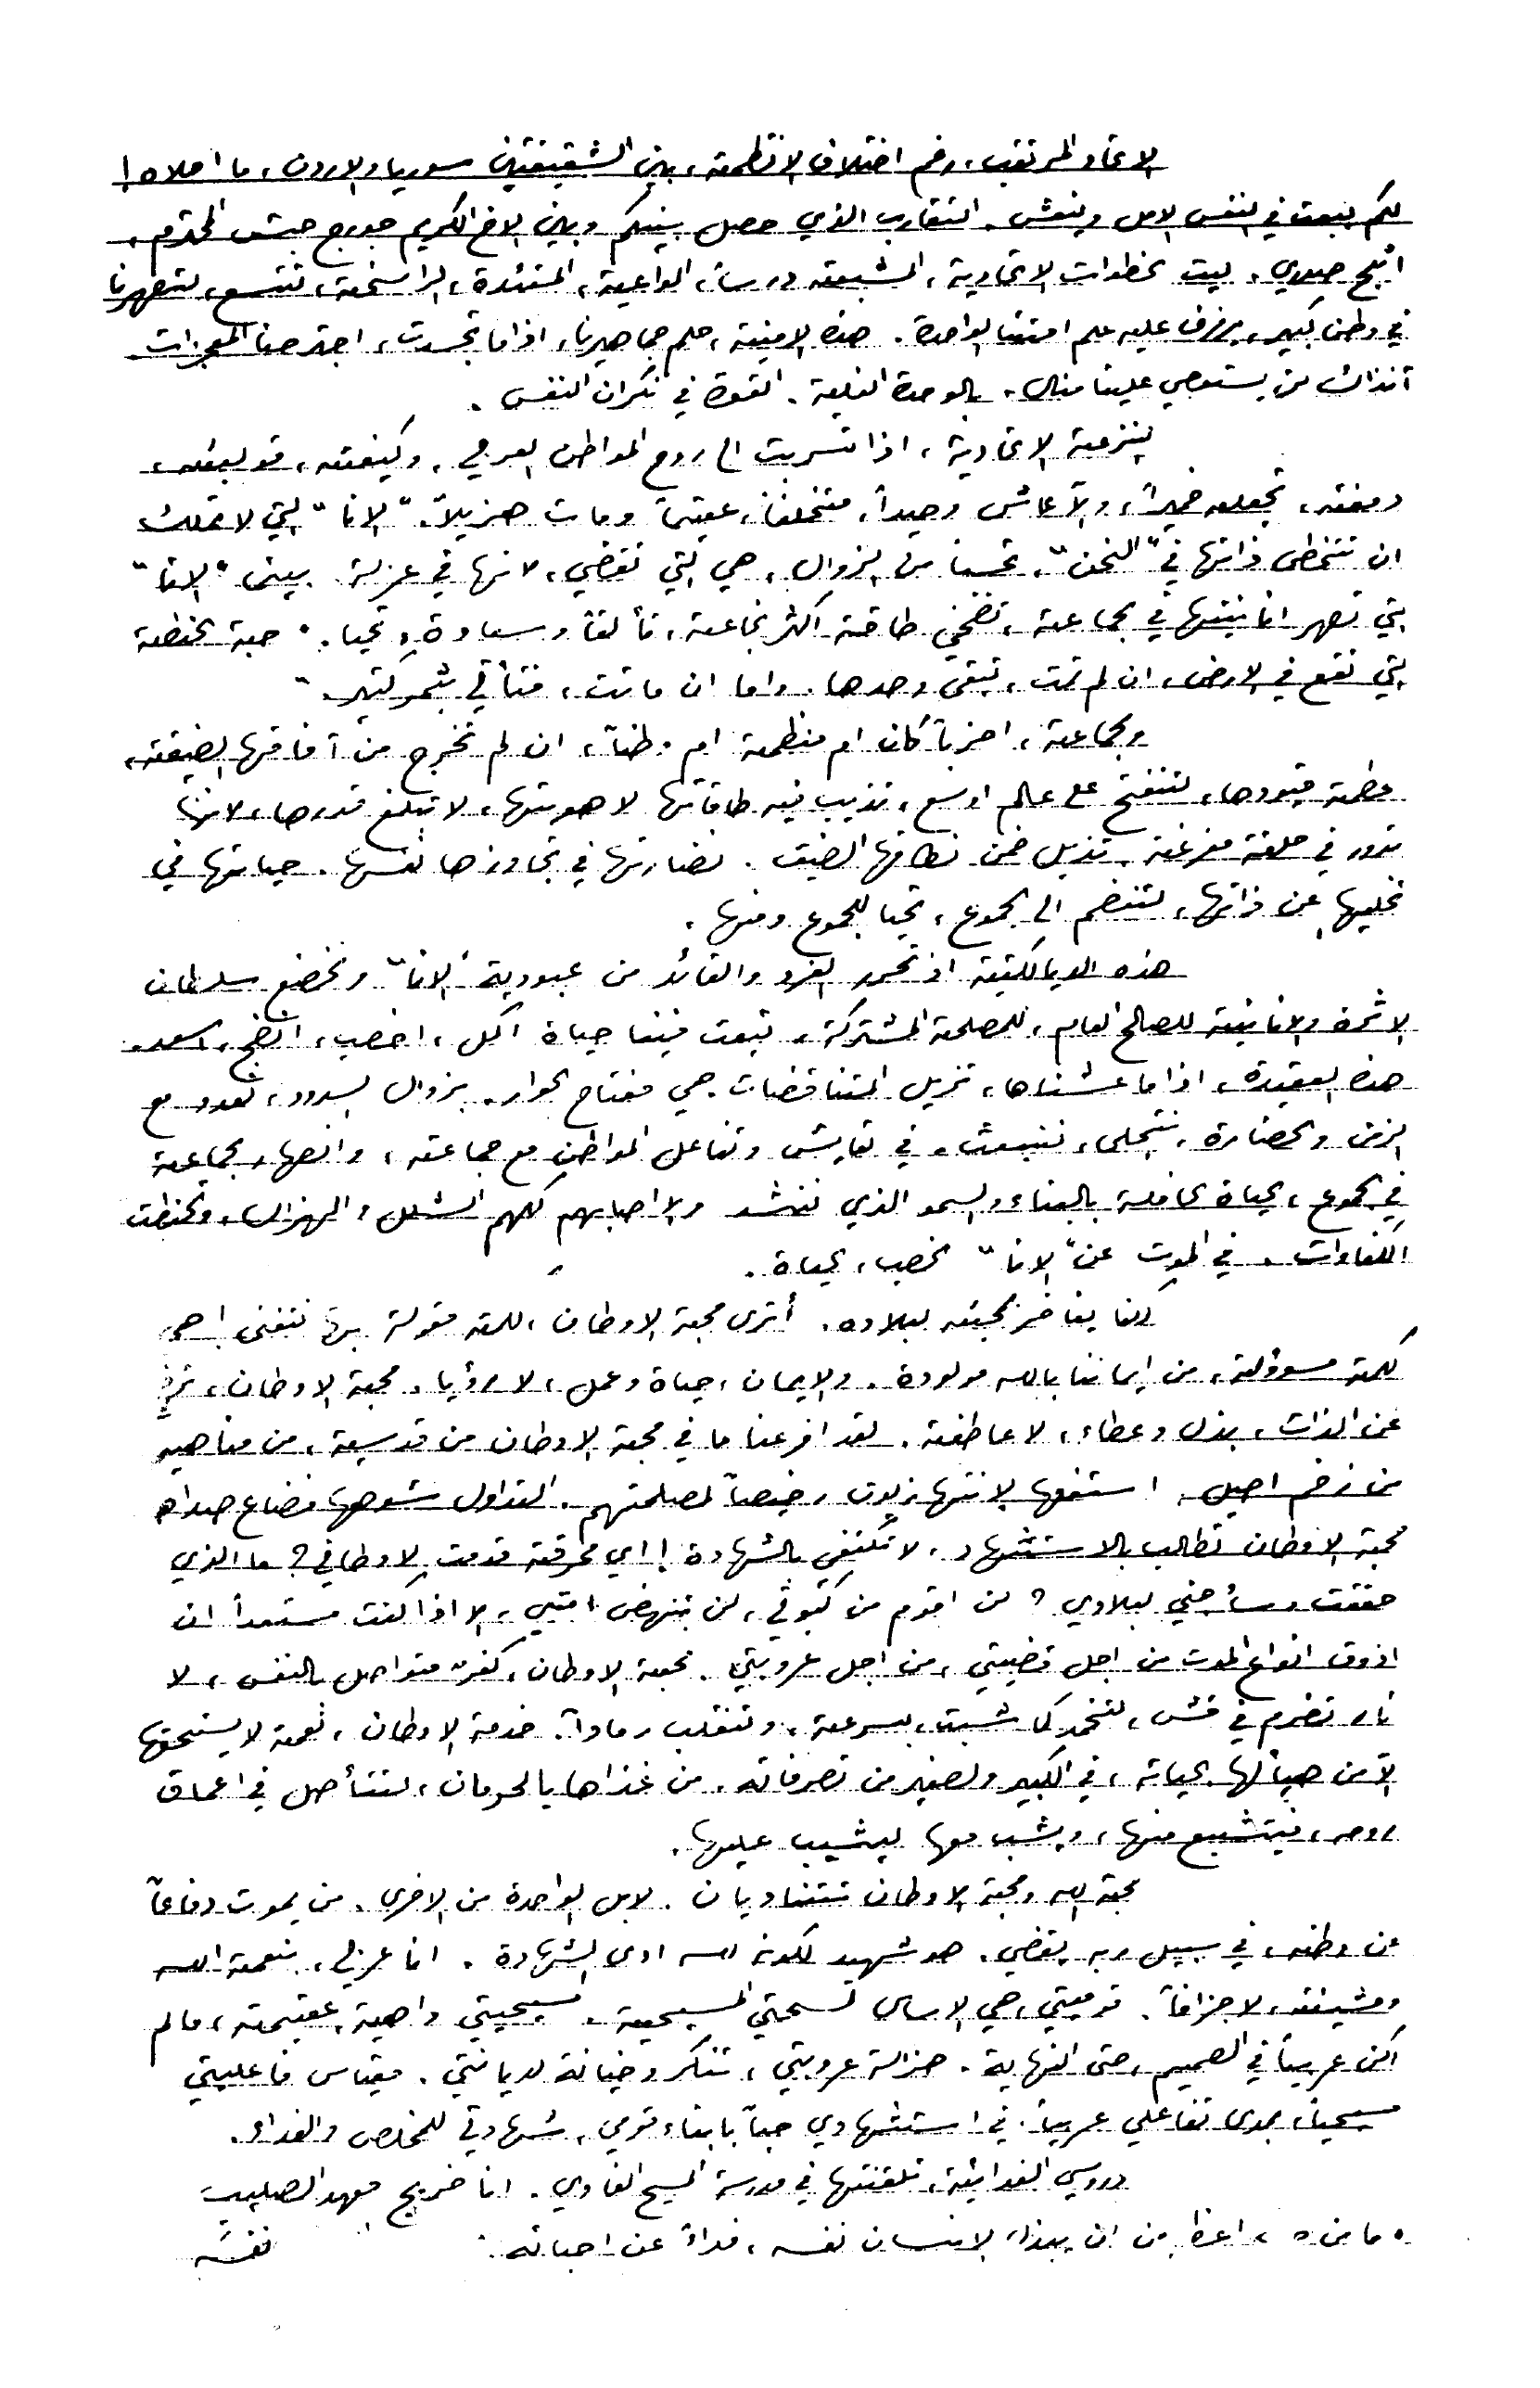 الاتحاد المرتقب، رغم اختلاف الانظمة، بين الشقيقتين سوريا والاردن، ما احلاه!
لكم يبعث في النفس الامل وينعش. التقارب الذي حصل بينكم وبين الاخ الكريم جورج حبش المحترم،
اثلج صدري. ليت الخطوات الاتحادية، المشبعة درساً، الواعية، المتئدة، الراسخة، تتسع، لتصهرنا
في وطن كبير، يرفرف عليه علم امتنا الواحدة. هذه الامنية، حلم جماهيرنا، اذا ما تجسدت، اجترحنا المعجزات.
آنذاك لن يستعصي علينا منال، بالوحدة الغلبة. القوة في نكران النفس.
النزعة الاتحادية، اذا تسربت الى روح المواطن العربي، وكيفته، قولبته،
دمغته، تجعله خميراً، والا عاش وحيداً، متخلفاً، عقيماً ومات هزيلاً. "الانا" التي لا تملك
ان تتخطى ذاتها في "النحن"، تحسباً من الزوال، هي التي تقضي، لانها في عزلة. بينما "الانا"
التي تصهر انانيتها في الجماعة، تضحي طاقة اكثر نجاعة، تألقاً وسعادة وتحيا. "حبة الحنطة
التي تقع في الارض، ان لم تمت، تبقى وحدها. واما ان ماتت، فتأتي بثمر كثير."
والجماعة، احزباً كان ام منظمة ام وطناً، ان لم تخرج من آفاقها الضيقة،
محطمة قيودها، لتنفتح على عالم اوسع، تذيب فيه طاقاتها لا هويتها، لا تبلغ قدرها، لانها
تدور في حلقة مفرغة، تذبل ضمن نطاقها الضيق. نضارتها في تجاوزها نفسها. حياتها في
تخليها عن ذاتها، لتنضم الى الجموع، تحيا للجموع ومنها.
هذه الديالكتية اذ تحرر الفرد والقائد من عبودية "الانا" وتخضع سلطان
الاثرة والانانية للصالح العام، للمصلحة المشتركة، تبعث فينا حياة اكمل، اخصب، انضج، اسعد.
هذه العقيدة، اذا ما عشناها، تزيل المتناقضات. هي مفتاح الحوار. بزوال السدود، نعدو مع
الزمن والحضارة. تتجلى، تنبعث، في تعايش وتفاعل المواطن مع جماعته، وانصهار الجماعة
في الجموع، الحياة الحافلة بالبقاء والسمو الذي ننشد والا اصابهم كلهم الشلل والهزال، وتحنطت
الكفاءات. في الموت عن "الانا" الخصب، الحياة.
كلنا يفاخر بمحبته لبلاده. أترى محبة الاوطان، كلمة مقولة بها نتغنى! هي
كلمة مسؤولة، من إيماننا بالله مولودة. والايمان، حياة وعمل، لا رؤيا. محبة الاوطان،
عن الذات، بذل وعطاء، لا عاطفة. لقد افرغنا ما في محبة الاوطان من قدسية، من مناهيه
من زخم اصيل. استغلها الانتهازيون رخيصاً لمصلحتهم. التداول شوهها فضاع صداها
محبة الاوطان تطالب بالاستشهاد، لا تكتفي بالشهادة! اي محرقة قدمت لاوطاني؟ ما الذي
حققت وسأجني لبلادي؟ لن اقوم من كبوتي، لن تنهض امتي، الا اذا كنت مستعداً ان
اذوق انواع الموت من اجل قضيتي، من اجل عروبتي. محبة الاوطان، كفر متواصل بالنفس، لا
نار تضرم في قش، لتخمد كما شبت، بسرعة، وتنقلب رماداً. خدمة الاوطان، نعمة لا يستحقها
الا من هيأ لها بحياته، في الكبير والصغير من تصرفاته. من غذاها بالحرمان، لتتأصل في اعماق
روحه، فيتشبع منها، ويشب معها ليشيب عليها.
محبة الله ومحبة الاوطان تتناديان. لا بل الواحدة من الاخرى. من يموت دفاعاً
عن وطنه، في سبيل ربه يقضي. هو شهيد لكونه لله ادى الشهادة. انا عربي، بنعمة الله
ومشيئته، لا جزافاً. قوميتي، هي الاساس لسمتي المسيحية. مسيحيتي واهية، عقيمة، ما لم
اكن عربياً في الصميم، حتى النهاية. هزالة عروبتي، تنكر وخيانة لديانتي. مقياس فاعليتي
مسيحياً، بمدى تفاعلي عربياً. في استشهادي حباً بابناء قومي، شهادتي للمخلص والفداء.
دروسي الفدائية، تلقنتها في مدرسة المسيح الفادي. انا خريج معهد الصليب
"ما من ، اعظم من ان يبذل الانسان نفسه، فداءً عن احبائه." نفسَه